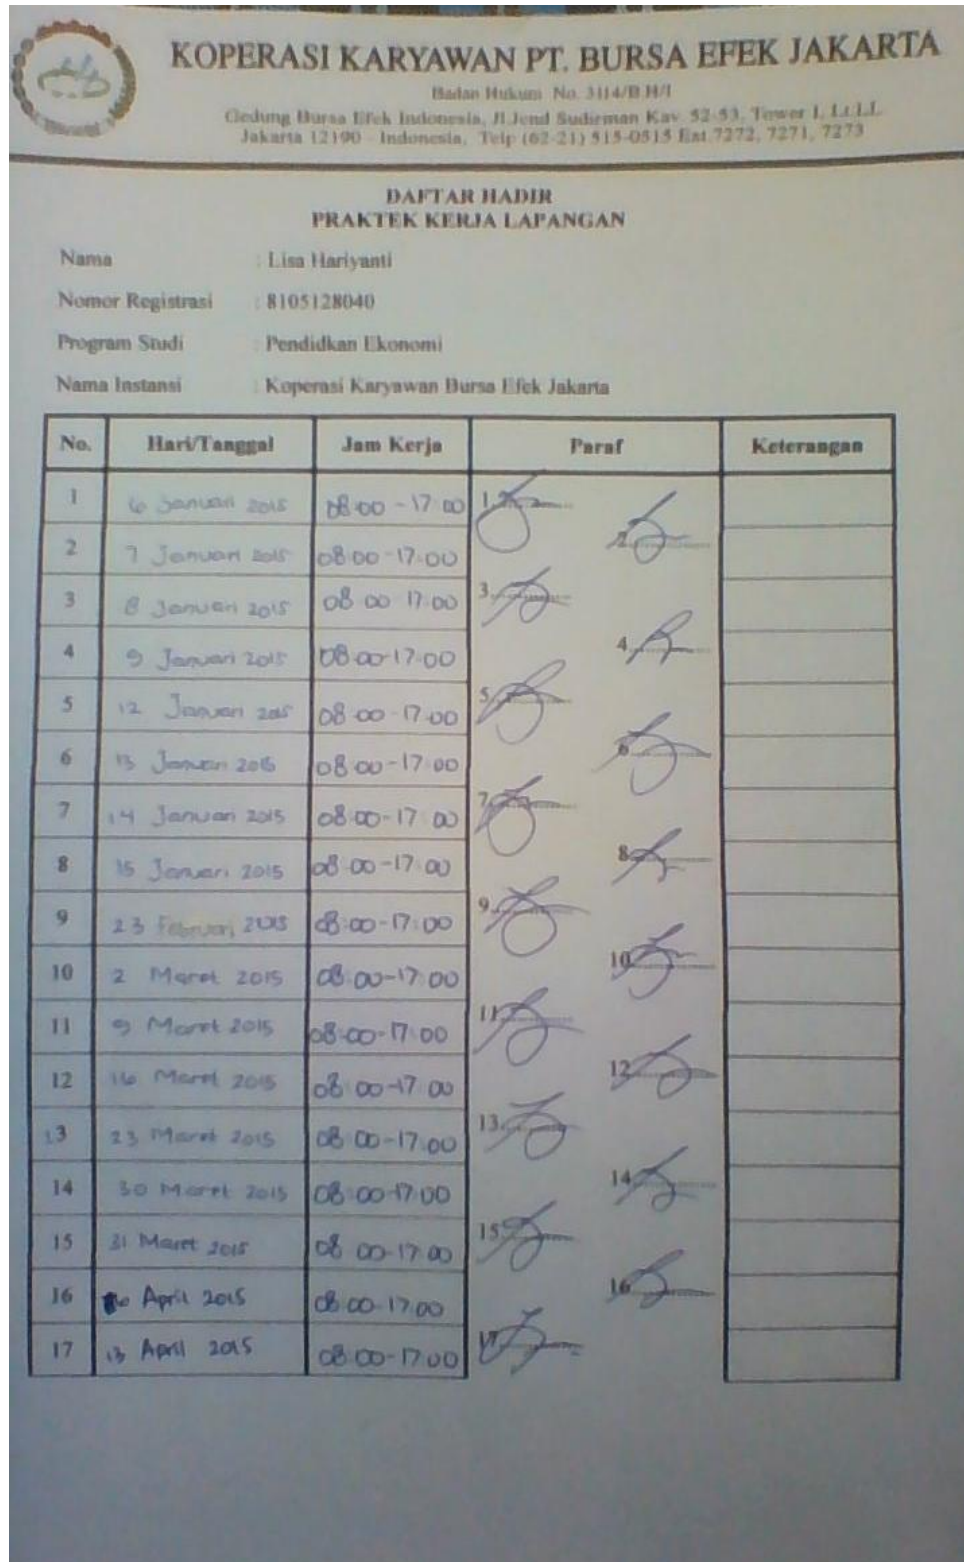 KOPERASI KARYAWAN PT. BURSA EFEK JAKARTA
Badan Hukum No. 3114/B.H/I
Gedung Bursa Efek Indonesia, Jl.Jend Sudirman Kav. 52-53, Tower I,
Jakarta 12190 - Indonesia, Telp (62-21) 515-0515 Ext.7272, 7271, 7273
DAFTAR HADIR
PRAKTEK KERJA LAPANGAN
Nama : Lisa Hariyanti
Nomor Registrasi : 8105128040
Program Studi : Pendidkan Ekonomi
Nama Instansi : Koperasi Karyawan Bursa Efek Jakarta
No. Hari/Tanggal Jam Kerja Paraf Keterangan
1 6 Januari 2015 08.00 - 17.00 1.
2 7 Januari 2015 08.00 - 17.00 2.
3 8 Januari 2015 08.00 17.00 3.
4 9 Januari 2015 08.00-17.00 4.
5 12 Januari 2015 08.00 - 17.00 5.
6 13 Januari 2015 08.00 - 17.00 6
7 14 Januari 2015 08.00-17.00 7.
8 15 Januari 2015 08.00-17.00 8.
9 23 Februari 2015 08:00-17:00 9.
10 2 Maret 2015 08.00-17.00 10
11 9 Maret 2015 08.00-17.00 11
12 16 Maret 2015 08.00-17.00 12
13 23 Maret 2015 08.00-17.00 13.
14 30 Maret 2015 08.00-17.00 14
15 31 Maret 2015 08.00-17.00 15
16 6 April 2015 08.00-17.00 16
17 13 April 2015 08.00-17.00 17